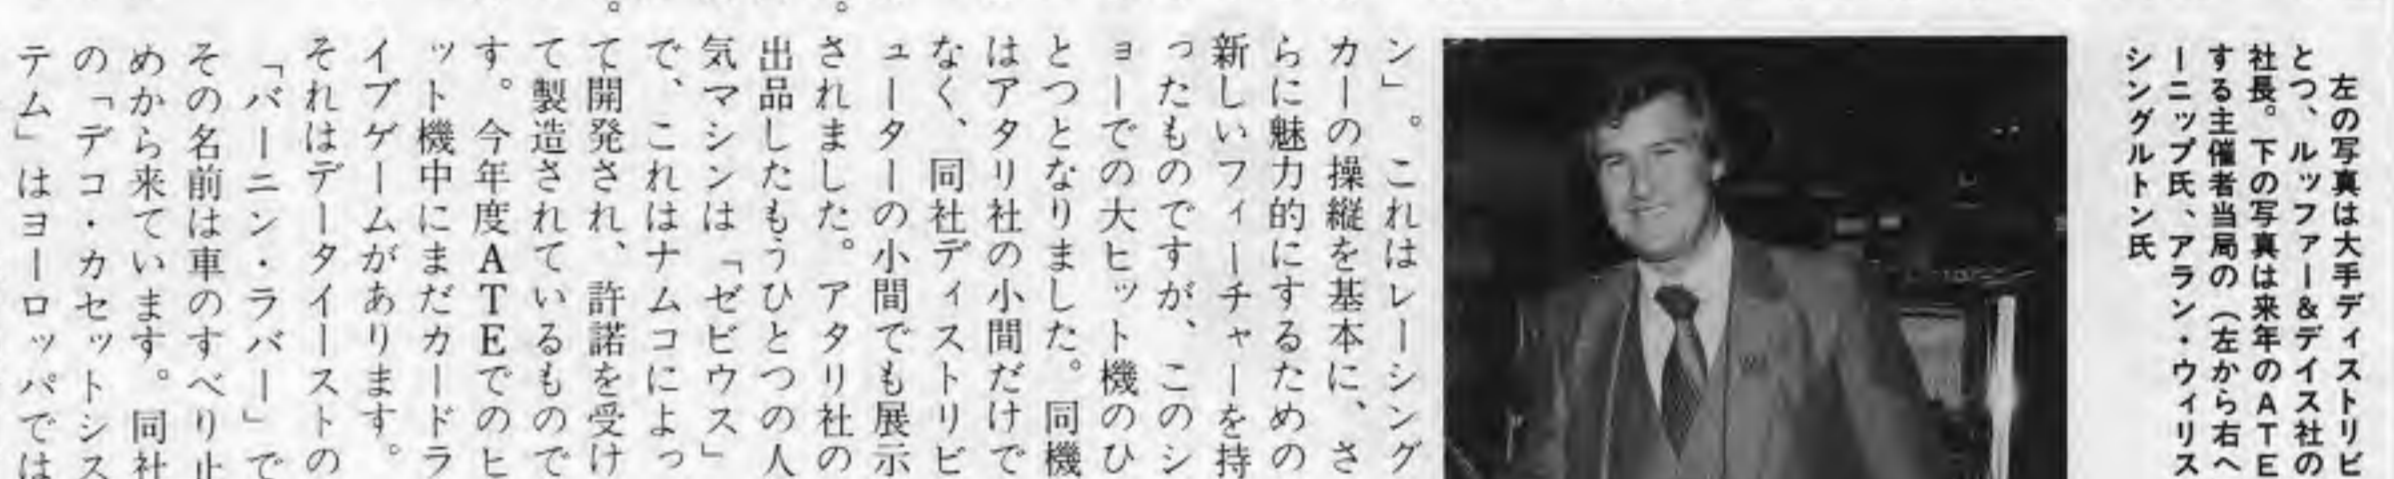 左の写真は大手ディストリビ
とつ、ルッファー&デイス社の
社長。下の写真は来年のATE
する主催者当局の（左から右へ
ーニップ氏、アラン・ウィリス
シングルトン氏
ン」。これはレーシング
カーの操縦を基本に、さ
らに魅力的にするための
新しいフィーチャーを持
ったものですが、このシ
ョーでの大ヒット機のひ
とつとなりました。同機
はアタリ社の小間だけで
なく、同社ディストリビ
ューターの小間でも展示
されました。アタリ社の
出品したもうひとつの人
気マシンは「ゼビウス」
で、これはナムコによっ
て開発され、許諾を受け
て製造されているもので
す。今年度ATEでのヒ
ット機中にまだカードラ
イブゲームがあります。
それはデータイーストの
「バーニン・ラバー」で
その名前は車のすべり止
めから来ています。同社
の「デコ・カセットシス
テム」はヨーロッパでは